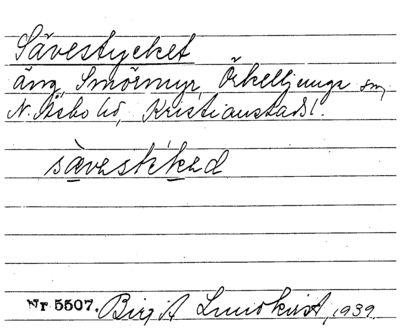 Sävestycket
äng, Smörmyr, Örkelljunga sn,
N. Åsbo hd, Kristianstads l.
sävestikəd
Nr 5507. Birgit Lundkvist, 1939.